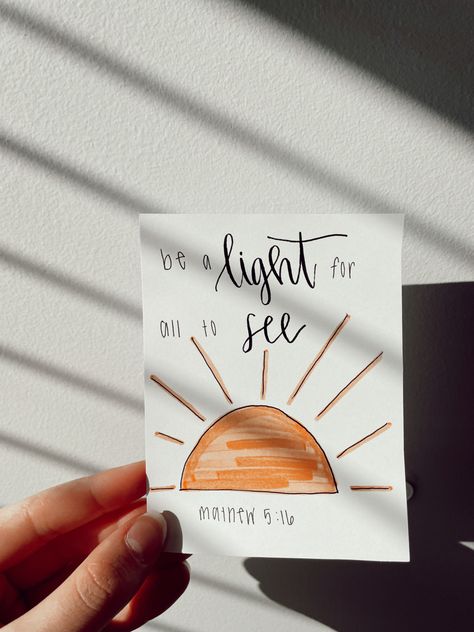 be a light for
all to see
mathew 5:16